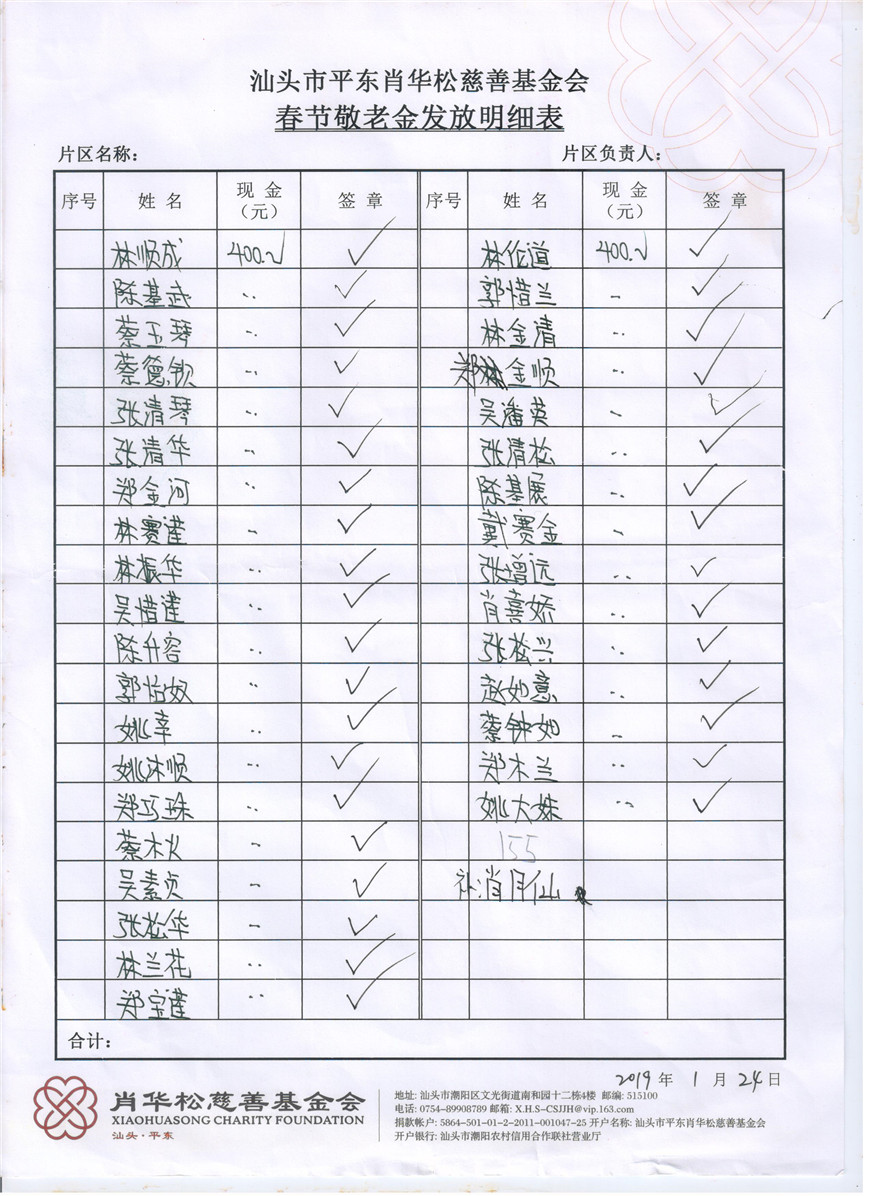 汕头市平东肖华松慈善基金会
春节敬老金发放明细表
片区名称： 片区负责人：
序号 姓名 现金（元） 签章 序号 姓名 现金（元） 签章
林顺成 400.- ✓ 林伦道 400.- ✓
陈基武 ·· ✓ 郭惜兰 - ✓
蔡玉琴 ·· ✓ 林金清 ·· ✓
蔡德钦 ·· ✓ 郑金顺 ·· ✓
张清琴 ·· ✓ 吴潘英 - ✓
张清华 ·· ✓ 张清松 ·· ✓
郑金河 ·· ✓ 陈基展 ·· ✓
林赛莲 - ✓ 戴赛金 - ✓
林振华 ·· ✓ 张增远 ·· ✓
吴惜莲 ·· ✓ 肖喜娇 ·· ✓
陈升容 ·· ✓ 张松兴 ·· ✓
郭怡奴 ·· ✓ 赵如意 ·· ✓
姚幸 ·· ✓ 蔡钟如 - ✓
姚沐顺 ·· ✓ 郑木兰 ·· ✓
郑巧珠 ·· ✓ 姚大妹 ·· ✓
蔡木火 - ✓ 155
吴素贞 - ✓ 补:肖月仙
张松华 - ✓
林兰花 ·· ✓
郑宝莲 ·· ✓
合计：
2019 年 1 月 24 日
肖华松慈善基金会
XIAOHUASONG CHARITY FOUNDATION
汕头·平东
地址: 汕头市潮阳区文光街道南和园十二栋4楼 邮编: 515100
电话: 0754-89908789 邮箱: X.H.S-CSJJH@vip.163.com
捐款帐户: 5864-501-01-2-2011-001047-25 开户名称: 汕头市平东肖华松慈善基金会
开户银行: 汕头市潮阳农村信用合作联社营业厅